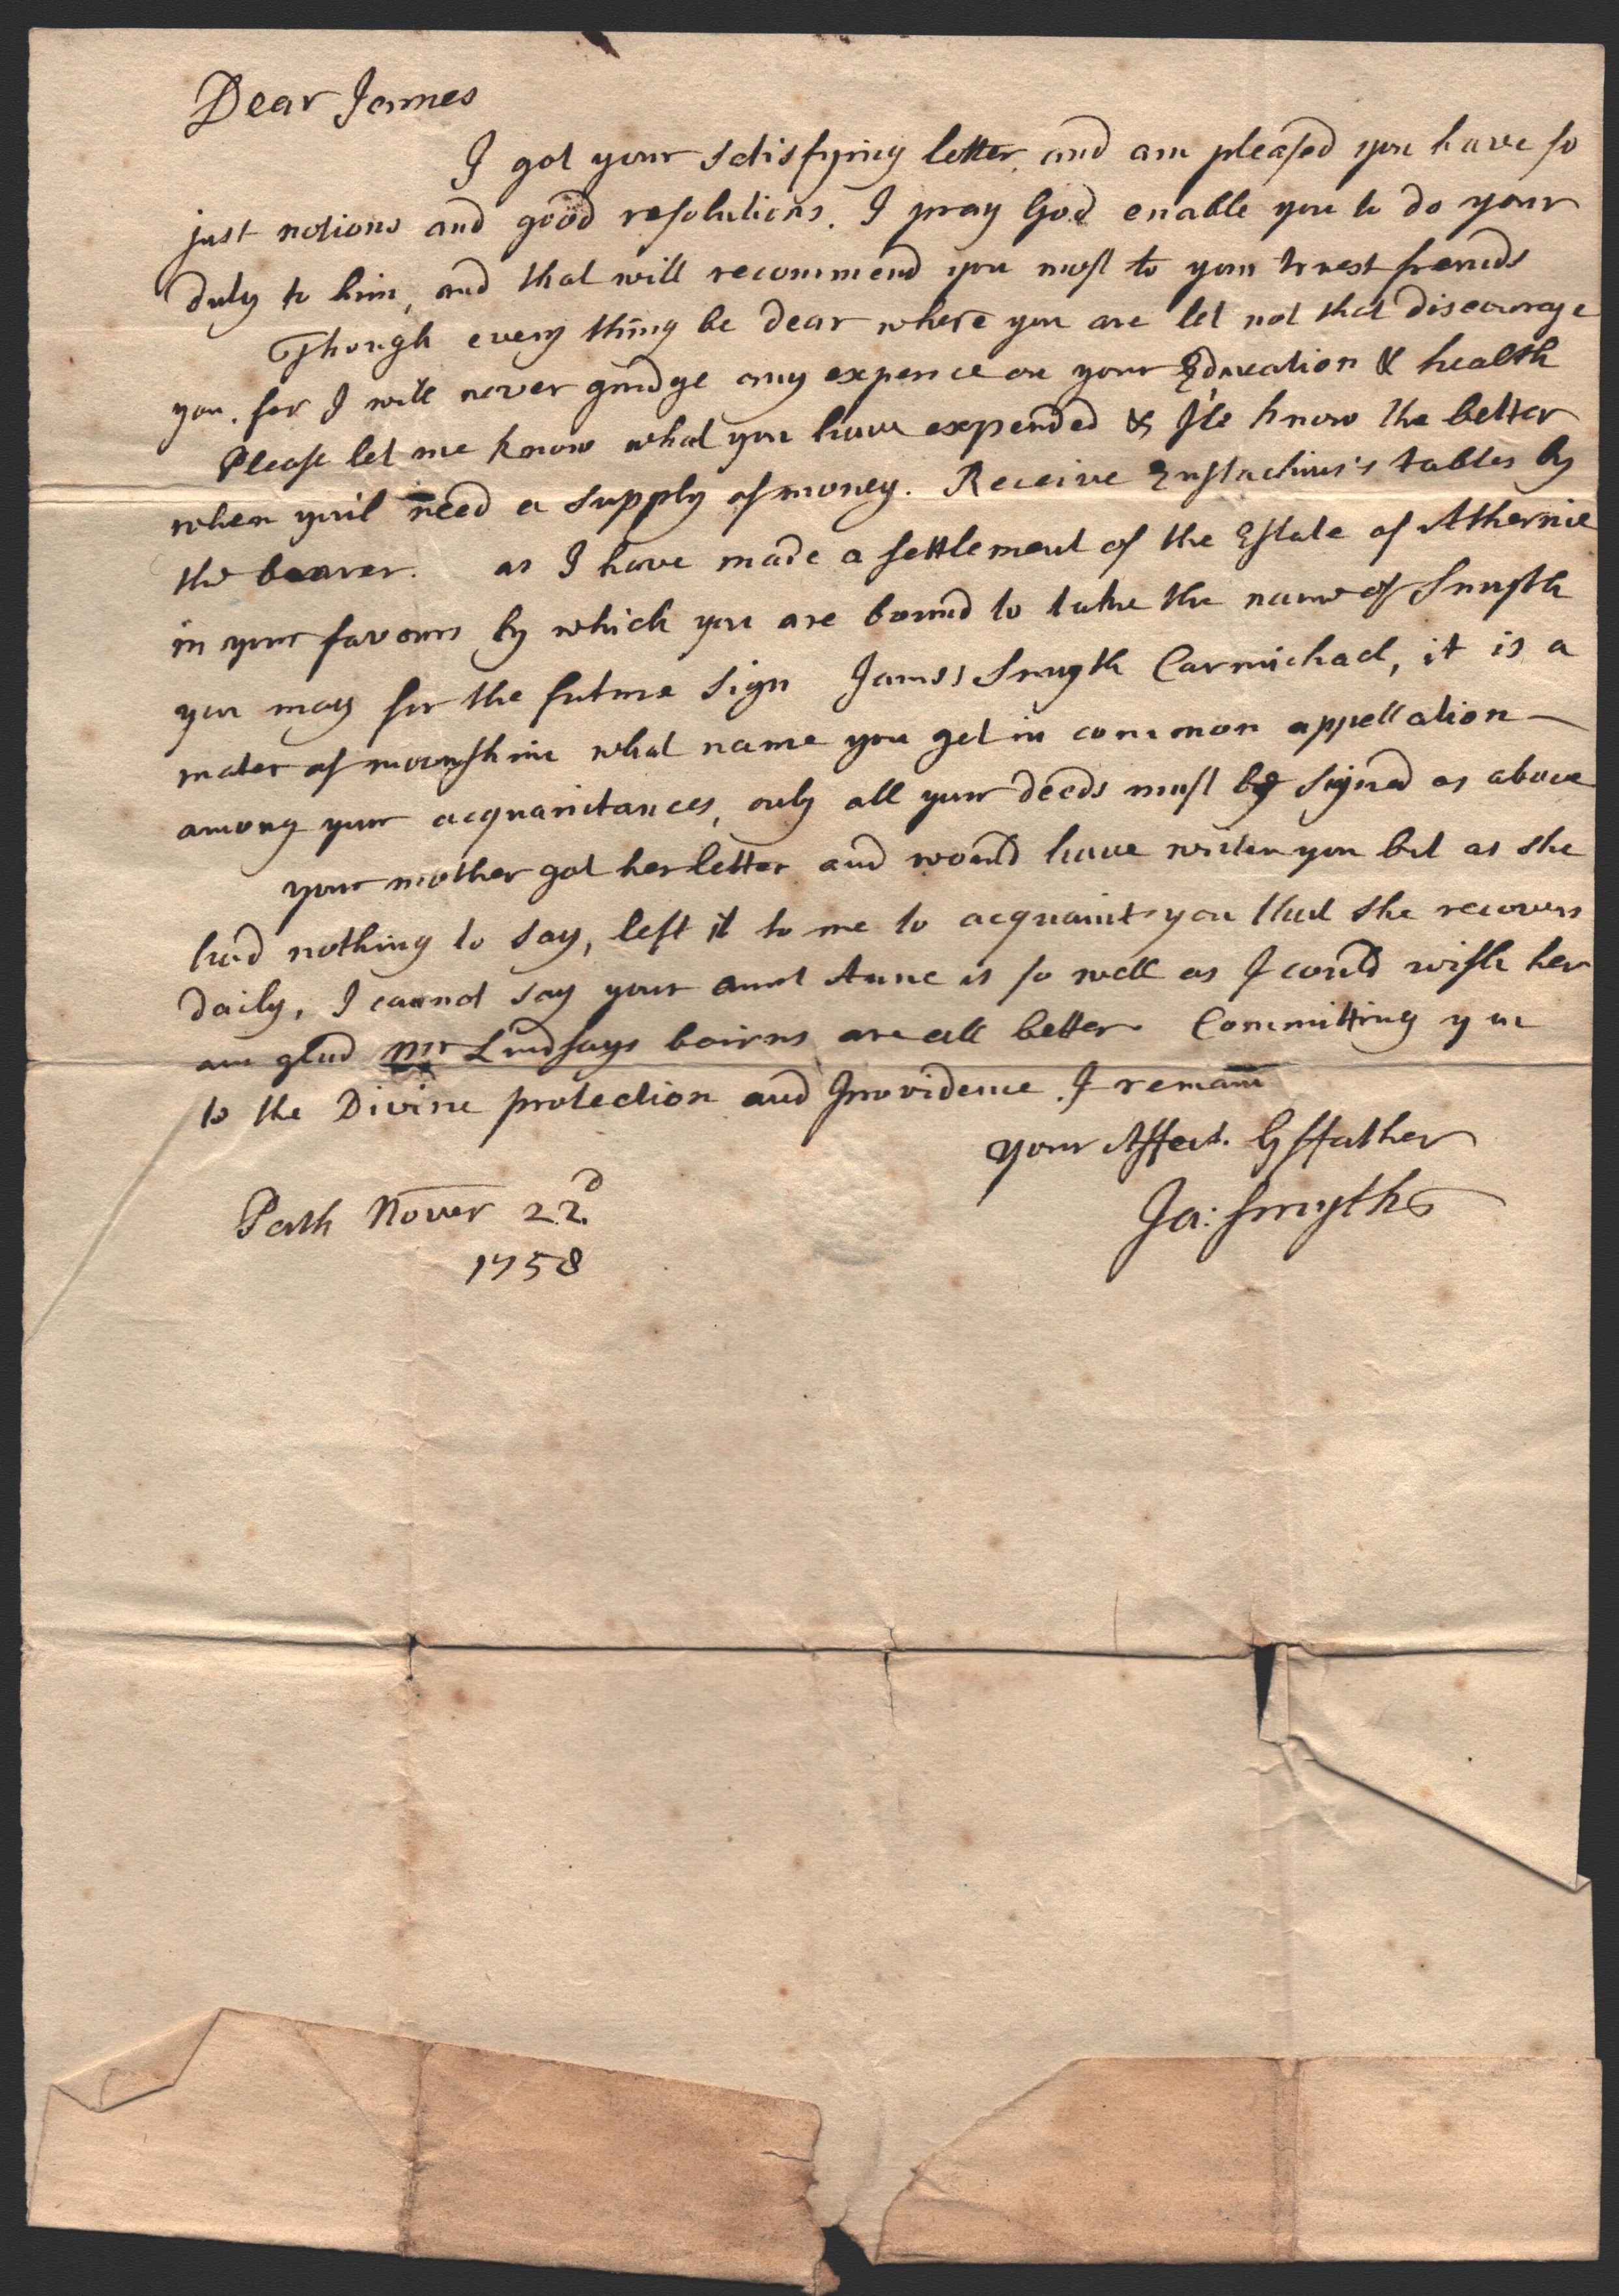 Dear James
I got your satisfying letter, and am pleased you have so
just notions and good resolutions. I pray God enable you to do your
duty to him, and that will recommend you most to your truest freinds
Though every thing be dear where you are let not that discourage
you. for I will never grudge any expence on your Education & health
Please let me know what you have expended & I'le know the better
when youil need a supply of money. Receive Eustachius's tables by
the bearer. as I have made a settlement of the Estate of Athernie
in your favours by which you are bound to take the name of Smyth
you may for the future sign James Smyth Carmichael, it is a
mater of moonshine what name you get in common appellation
among your acquaintances, only all your deeds must be signed as above
your mother got her letter and would have writen you but as she
had nothing to say, left it to me to acquaint you that she recovers
daily, I cannot say your aunt Anne is so well as I could wish her
am glad Mr Lindsays bairns are all better Committing you
to the Divine protection and providence. I remain
your Affect. Gffather
Ja: Smyth
Perth Nover 22d
1758